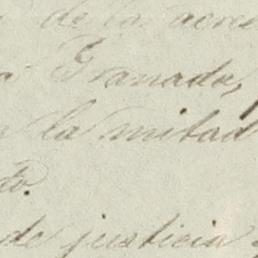 de la
Granada,
la mitad
to.
de justicia